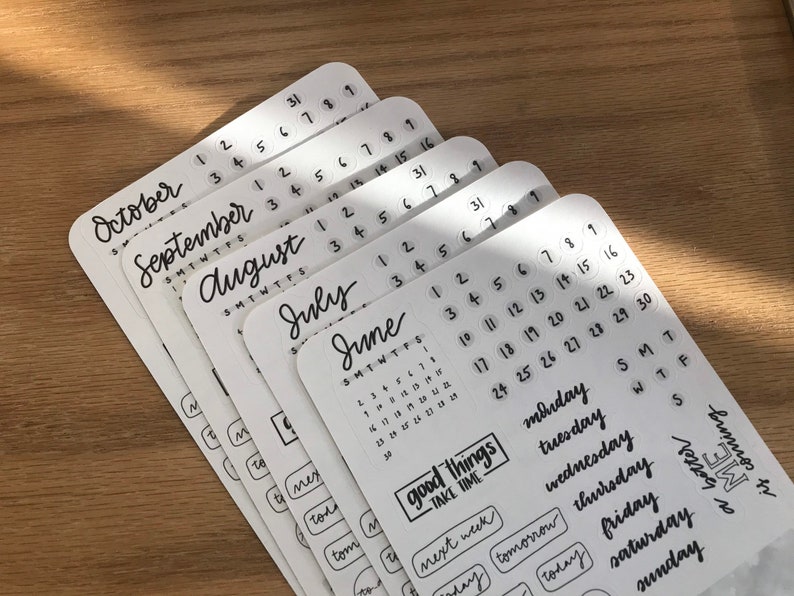 October
S M T W T F S
31
1 2
3 4 5 6 7 8 9
September
S M T W T F S
1 2
3 4 5 6 7 8 9
10 11 12 13 14 15 16
August
S M T W T F S
31
1 2
3 4 5 6 7 8 9
July
S
31
1 2
3 4 5 6 7 8 9
June
S M T W T F S
1
2 3 4 5 6 7 8
9 10 11 12 13 14 15
16 17 18 19 20 21 22
23 24 25 26 27 28 29
30
1 2
3 4 5 6 7 8 9
10 11 12 13 14 15 16
17 18 19 20 21 22 23
24 25 26 27 28 29 30
S M T
W T F
S
good things
TAKE TIME
monday
tuesday
wednesday
thursday
friday
saturday
sunday
a better
ME
is coming
next week
tomorrow
today
next